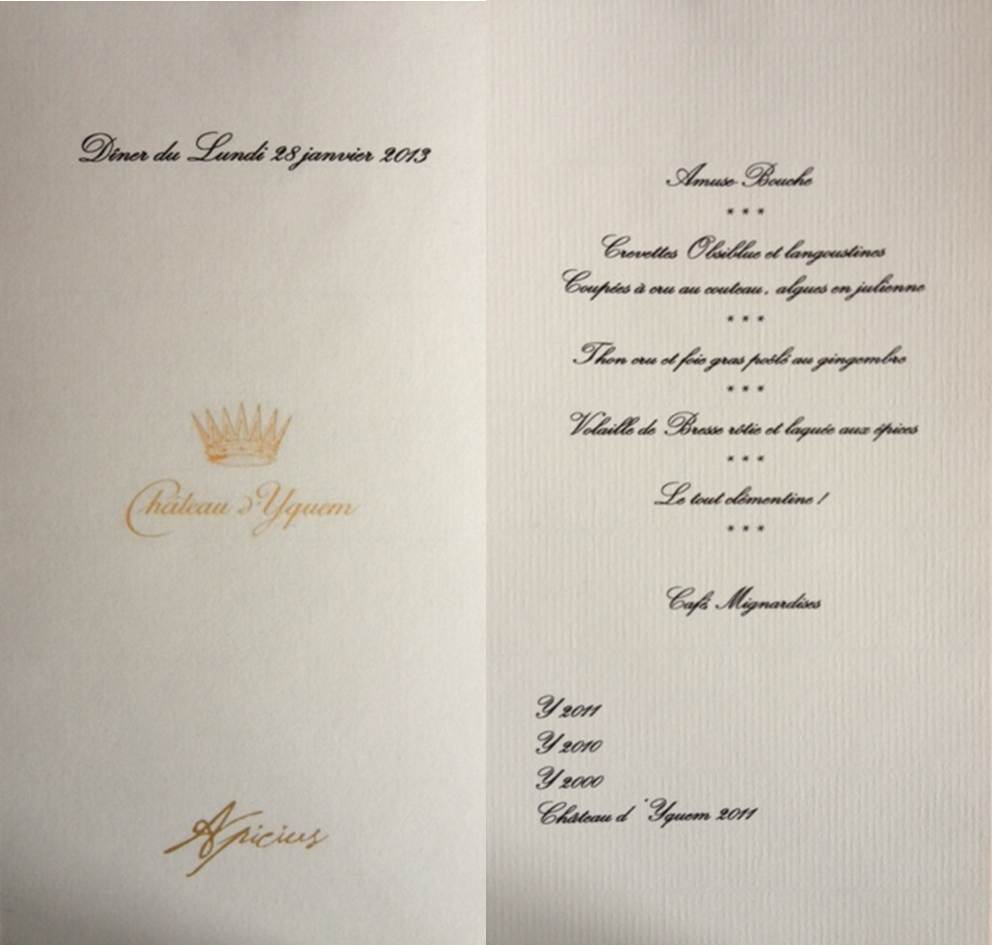 Dîner du Lundi 28 janvier 2013
Château d'Yquem
Apicius
Amuse Bouche
* * *
Crevettes Obsiblue et langoustines
Coupées à cru au couteau, algues en julienne
* * *
Thon cru et foie gras poêlé au gingembre
* * *
Volaille de Bresse rôtie et laquée aux épices
* * *
Le tout clémentine !
* * *
Café Mignardises
Y 2011
Y 2010
Y 2000
Château d 'Yquem 2011